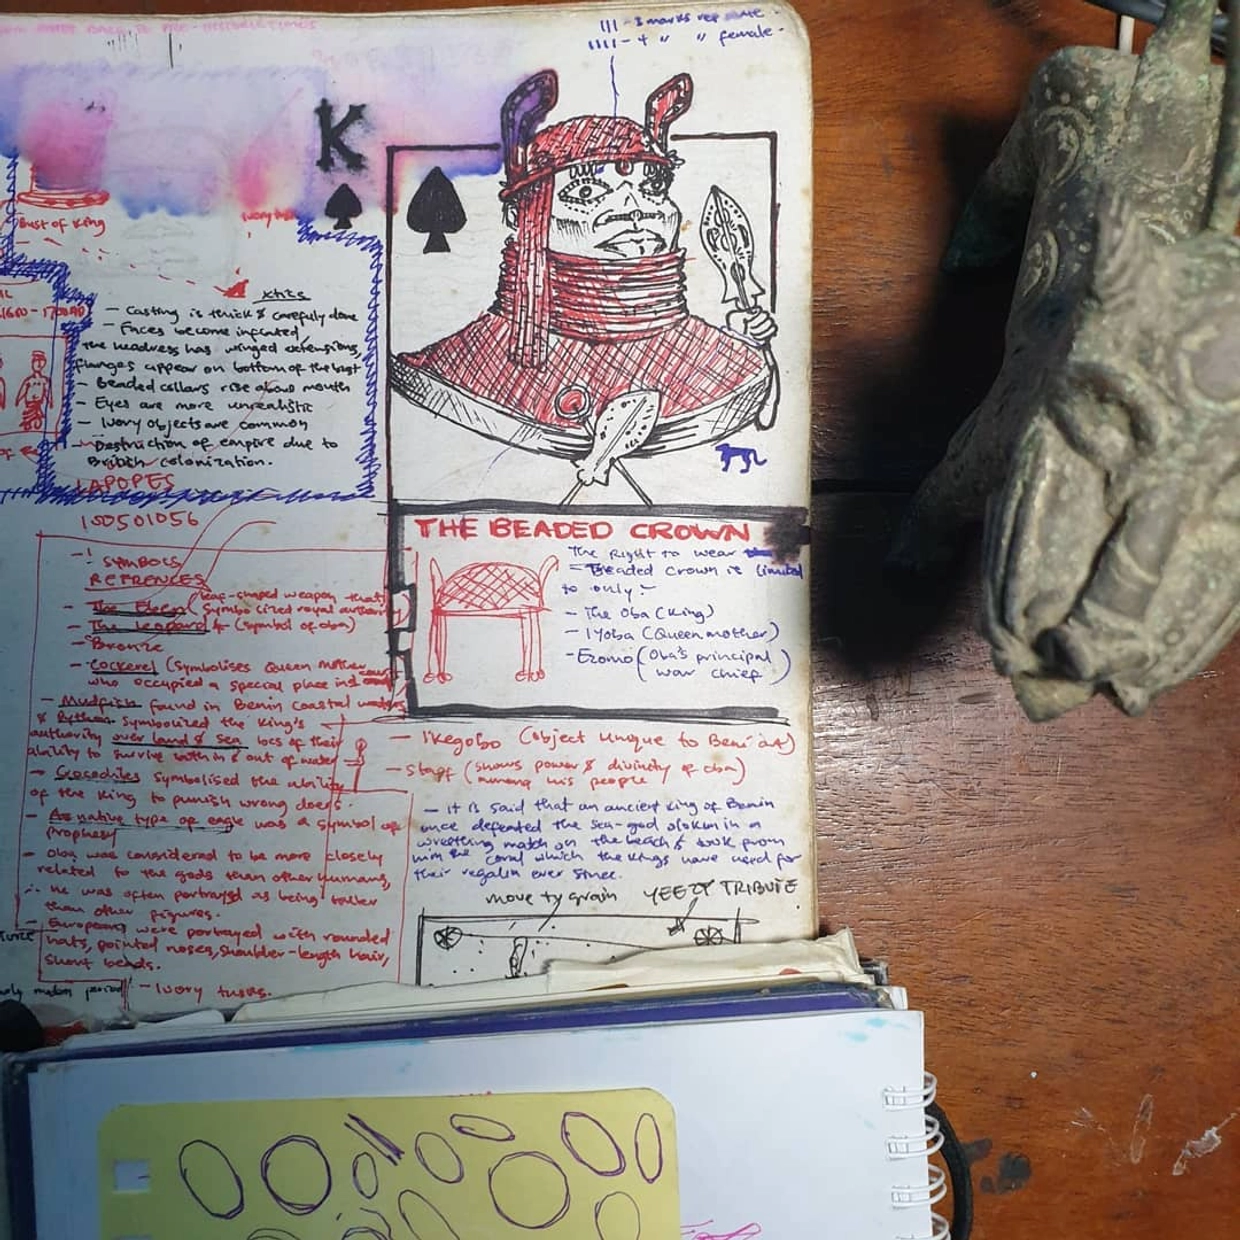 ||| - 3 marks rep
|||| - 4 " " female.
K
Bust of King
1600 - 1700AD
Xtics
- Casting is thick & carefully done
- Faces become inflated,
the headress has winged extensions,
flanges appear on bottom of the bust
- Beaded collars rise above mouth
- Eyes are more unrealistic
- Ivory objects are common
- Destruction of empire due to
British colonization.
LAPOPES
150501056
- ! SYMBOLS
REFRENCES
- The Eben (leaf-shaped weapon that
symbolized royal authority
- The Leopard (symbol of oba)
- Bronze
- Cockerel (Symbolises Queen mother
who occupied a special place in
- Mudfish found in Benin coastal waters
& Python symbolized the King's
authority over land & sea bcs of their
ability to survive both in & out of water
- Crocodiles symbolised the ability
of the King to punish wrong doers.
- A native type of eagle was a symbol of
prophesy
- Oba was considered to be more closely
related to the gods than other humans,
∴ he was often portrayed as being taller
than other figures.
- Europeans were portrayed with rounded
hats, pointed noses, shoulder-length hair,
short beads.
period
- Ivory tusks.
THE BEADED CROWN
The Right to wear
Beaded Crown is limited
to only :-
- The Oba (King)
- Iyoba (Queen mother)
- Ezomo (Oba's principal
war chief)
- Ikegobo (object unique to Benin art)
- Staff (shows power & divinity of oba)
among his people
- It is said that an ancient King of Benin
once defeated the sea-god olokun in a
wrestling match on the beach & took from
him the coral which the kings have used for
their regalia ever since.
move ty grain YEEZY TRIBUTE